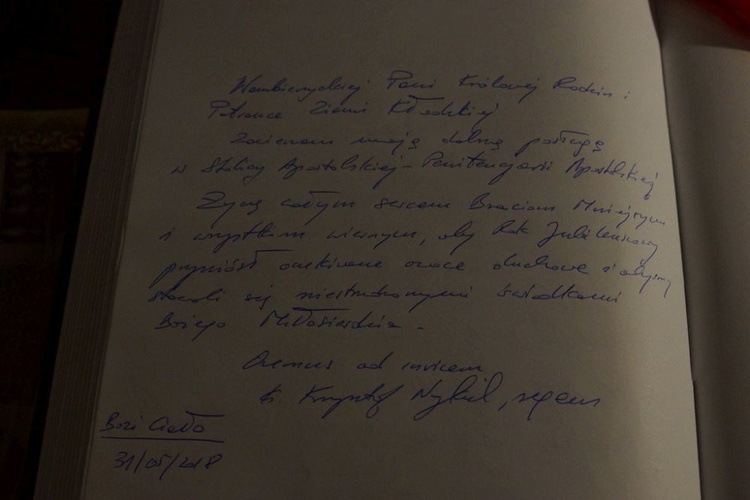 Wambierzyckiej Pani Królowej Rodzin i
Patronce Ziemi Kłodzkiej
Zawierzam moją dalszą posługę
w Stolicy Apostolskiej - Penitencjarii Apostolskiej
Życzę całym sercem Braciom Mniejszym
i wszystkim wiernym, aby Rok Jubileuszowy
przyniósł oczekiwane owoce duchowe i abyśmy
stawali się niestrudzonymi świadkami
Bożego Miłosierdzia.
Oremus ad invicem
ks. Krzysztof Nykiel, regens
Boże Ciało
31/05/2018